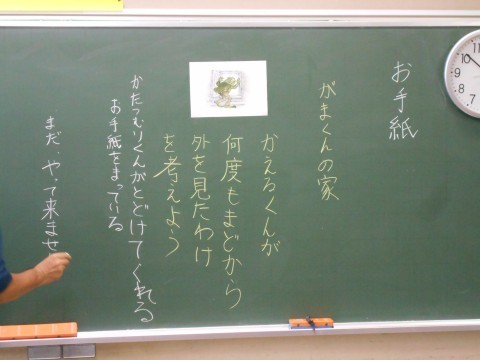 お手紙
がまくんの家
かえるくんが
何度もまどから
外を見たわけ
を考えよう
かたつむりくんがとどけてくれる
お手紙をまっている
まだやって来ませ